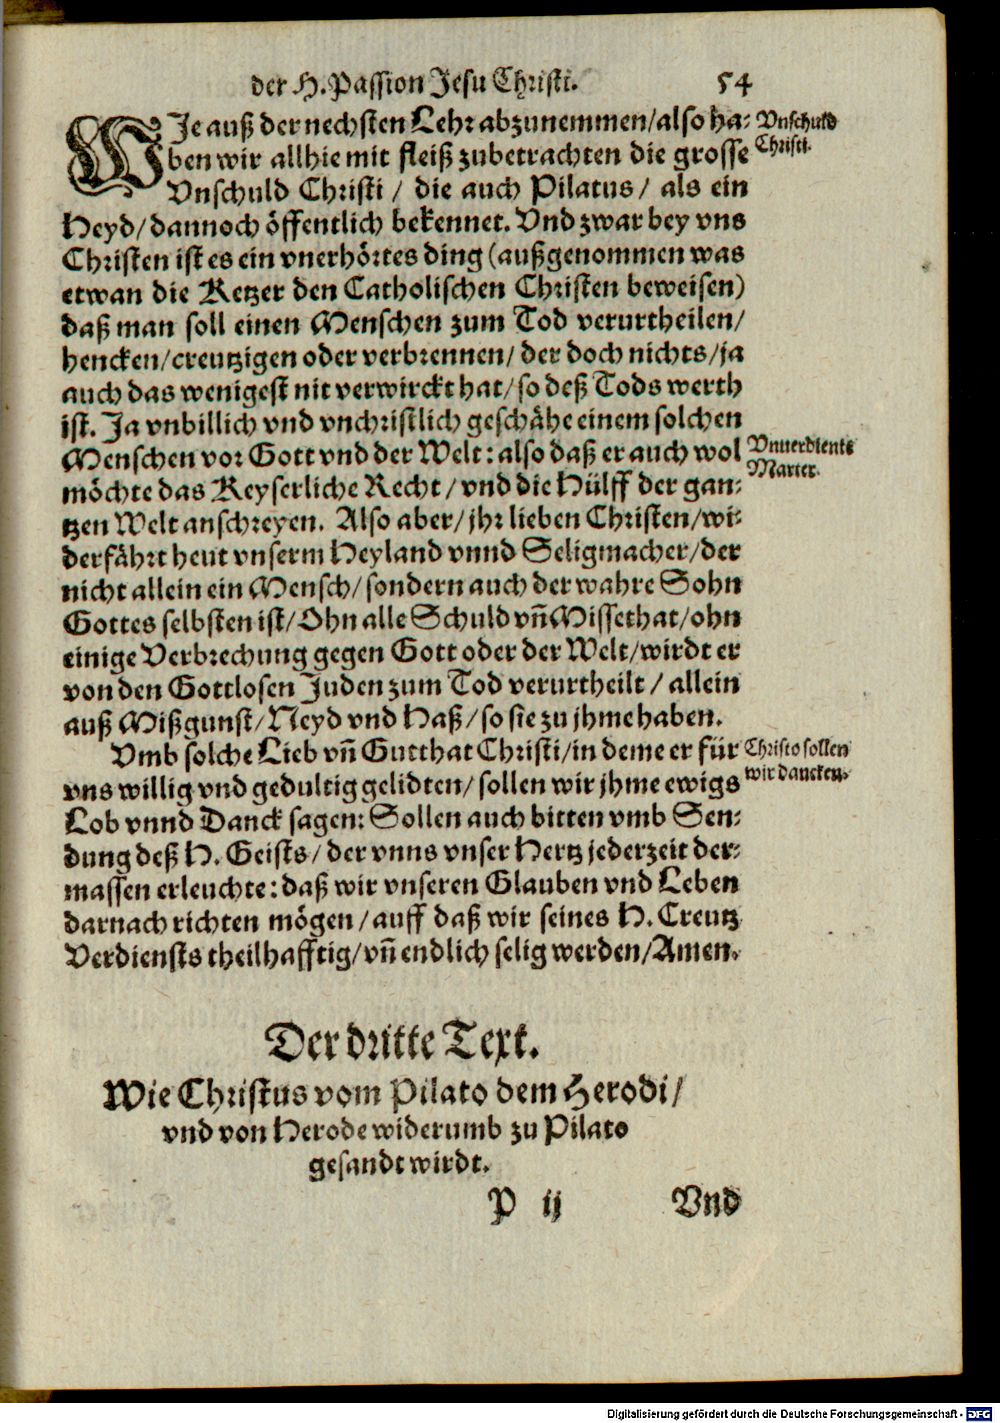 der H. Passion Jesu Christi. 54
WJe auß der nechsten Lehr abzunemmen/also ha-
Vnschuld
Christi.
ben wir allhie mit fleiß zubetrachten die grosse
Vnschuld Christi / die auch Pilatus / als ein
Heyd/dannoch öffentlich bekennet. Vnd zwar bey vns
Christen ist es ein vnerhörtes ding (außgenommen was
etwan die Ketzer den Catholischen Christen beweisen)
daß man soll einen Menschen zum Tod verurtheilen/
hencken/creutzigen oder verbrennen/ der doch nichts/ja
auch das wenigest nit verwirckt hat/so deß Tods werth
ist. Ja vnbillich vnd vnchristlich geschähe einem solchen
Menschen vor Gott vnd der Welt: also daß er auch wol
Vnuerdiente
Marter.
möchte das Keyserliche Recht / vnd die Hülff der gan-
tzen Welt anschreyen. Also aber/ jhr lieben Christen/wi-
derfährt heut vnserm Heyland vnnd Seligmacher/der
nicht allein ein Mensch/sondern auch der wahre Sohn
Gottes selbsten ist/Ohn alle Schuld vñ Missethat/ohn
einige Verbrechung gegen Gott oder der Welt/wirdt er
von den Gottlosen Juden zum Tod verurtheilt / allein
auß Mißgunst/Neyd vnd Haß/so sie zu jhme haben.
Vmb solche Lieb vñ Gutthat Christi/in deme er für
Christo sollen
wir dancken.
vns willig vnd gedultig gelidten/ sollen wir jhme ewigs
Lob vnnd Danck sagen: Sollen auch bitten vmb Sen-
dung deß H. Geists/der vnns vnser Hertz jederzeit der-
massen erleuchte: daß wir vnseren Glauben vnd Leben
darnach richten mögen /auff daß wir seines H. Creutz
Verdiensts theilhafftig/vñ endlich selig werden/Amen.
Der dritte Text.
Wie Christus vom Pilato dem Herodi/
vnd von Herode widerumb zu Pilato
gesandt wirdt.
P ij Vnd
Digitalisierung gefördert durch die Deutsche Forschungsgemeinschaft - DFG